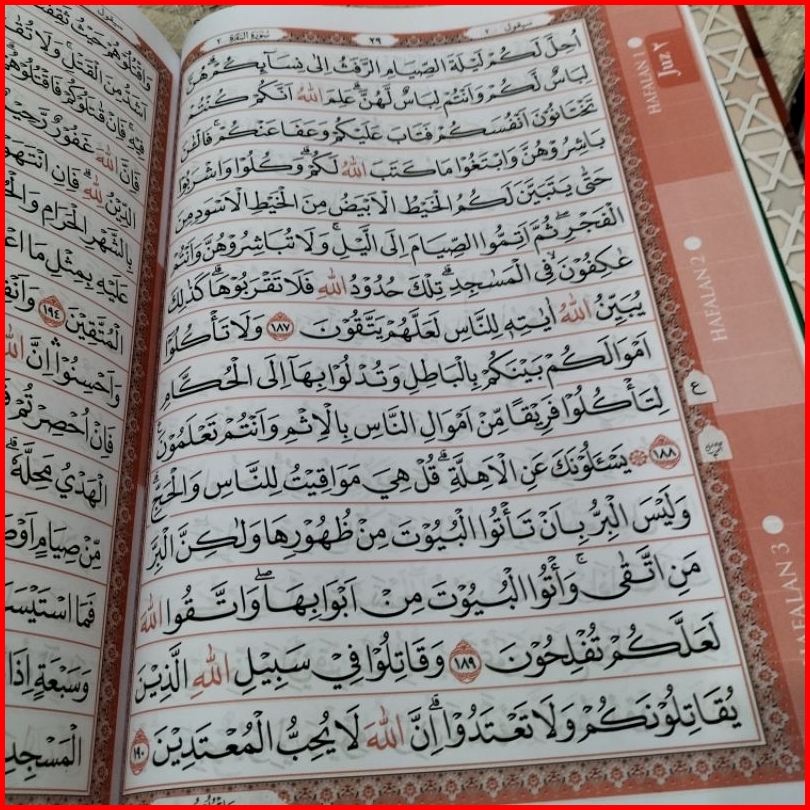 سيقول ٢
٢٩
سورة البقرة ٢
اُحِلَّ لَكُمْ لَيْلَةَ الصِّيَامِ الرَّفَثُ اِلٰى نِسَاۤىِٕكُمْ ۗ هُنَّ
لِبَاسٌ لَّكُمْ وَاَنْتُمْ لِبَاسٌ لَّهُنَّ ۗ عَلِمَ اللّٰهُ اَنَّكُمْ كُنْتُمْ
تَخْتَانُوْنَ اَنْفُسَكُمْ فَتَابَ عَلَيْكُمْ وَعَفَا عَنْكُمْ ۚ فَالْـٰٔنَ
بَاشِرُوْهُنَّ وَابْتَغُوْا مَا كَتَبَ اللّٰهُ لَكُمْ ۗ وَكُلُوْا وَاشْرَبُوْا
حَتّٰى يَتَبَيَّنَ لَكُمُ الْخَيْطُ الْاَبْيَضُ مِنَ الْخَيْطِ الْاَسْوَدِ مِنَ
الْفَجْرِ ۖ ثُمَّ اَتِمُّوا الصِّيَامَ اِلَى الَّيْلِ ۚ وَلَا تُبَاشِرُوْهُنَّ وَاَنْتُمْ
عٰكِفُوْنَ فِى الْمَسٰجِدِ ۗ تِلْكَ حُدُوْدُ اللّٰهِ فَلَا تَقْرَبُوْهَا ۗ كَذٰلِكَ
يُبَيِّنُ اللّٰهُ اٰيٰتِهٖ لِلنَّاسِ لَعَلَّهُمْ يَتَّقُوْنَ ١٨٧ وَلَا تَأْكُلُوْٓا
اَمْوَالَكُمْ بَيْنَكُمْ بِالْبَاطِلِ وَتُدْلُوْا بِهَآ اِلَى الْحُكَّامِ
لِتَأْكُلُوْا فَرِيْقًا مِّنْ اَمْوَالِ النَّاسِ بِالْاِثْمِ وَاَنْتُمْ تَعْلَمُوْنَ
١٨٨ ۞ يَسْـَٔلُوْنَكَ عَنِ الْاَهِلَّةِ ۗ قُلْ هِيَ مَوَاقِيْتُ لِلنَّاسِ وَالْحَجِّ ۗ
وَلَيْسَ الْبِرُّ بِاَنْ تَأْتُوا الْبُيُوْتَ مِنْ ظُهُوْرِهَا وَلٰكِنَّ الْبِرَّ
مَنِ اتَّقٰى ۚ وَأْتُوا الْبُيُوْتَ مِنْ اَبْوَابِهَا ۖ وَاتَّقُوا اللّٰهَ
لَعَلَّكُمْ تُفْلِحُوْنَ ١٨٩ وَقَاتِلُوْا فِيْ سَبِيْلِ اللّٰهِ الَّذِيْنَ
يُقَاتِلُوْنَكُمْ وَلَا تَعْتَدُوْا ۗ اِنَّ اللّٰهَ لَا يُحِبُّ الْمُعْتَدِيْنَ ١٩٠
HAFALAN 1
Juz ٢
HAFALAN 2
ع
HAFALAN 3
سيقول
وَاقْتُلُوْهُمْ حَيْثُ
اَشَدُّ مِنَ الْقَتْلِ ۚ وَلَا
فِيْهِ ۚ فَاِنْ قٰتَلُوْكُمْ فَاقْتُلُوْهُمْ
فَاِنَّ اللّٰهَ غَفُوْرٌ رَّحِيْمٌ
الدِّيْنُ لِلّٰهِ ۗ فَاِنِ انْتَهَوْا
بِالشَّهْرِ الْحَرَامِ
عَلَيْهِ بِمِثْلِ مَا
الْمُتَّقِيْنَ ١٩٤
وَاَحْسِنُوْا ۛ اِنَّ اللّٰهَ
فَاِنْ اُحْصِرْتُمْ
الْهَدْيُ مَحِلَّهٗ ۗ
مِّنْ صِيَامٍ اَوْ
فَمَا
وَسَبْعَةٍ اِذَا
الْمَسْجِدِ